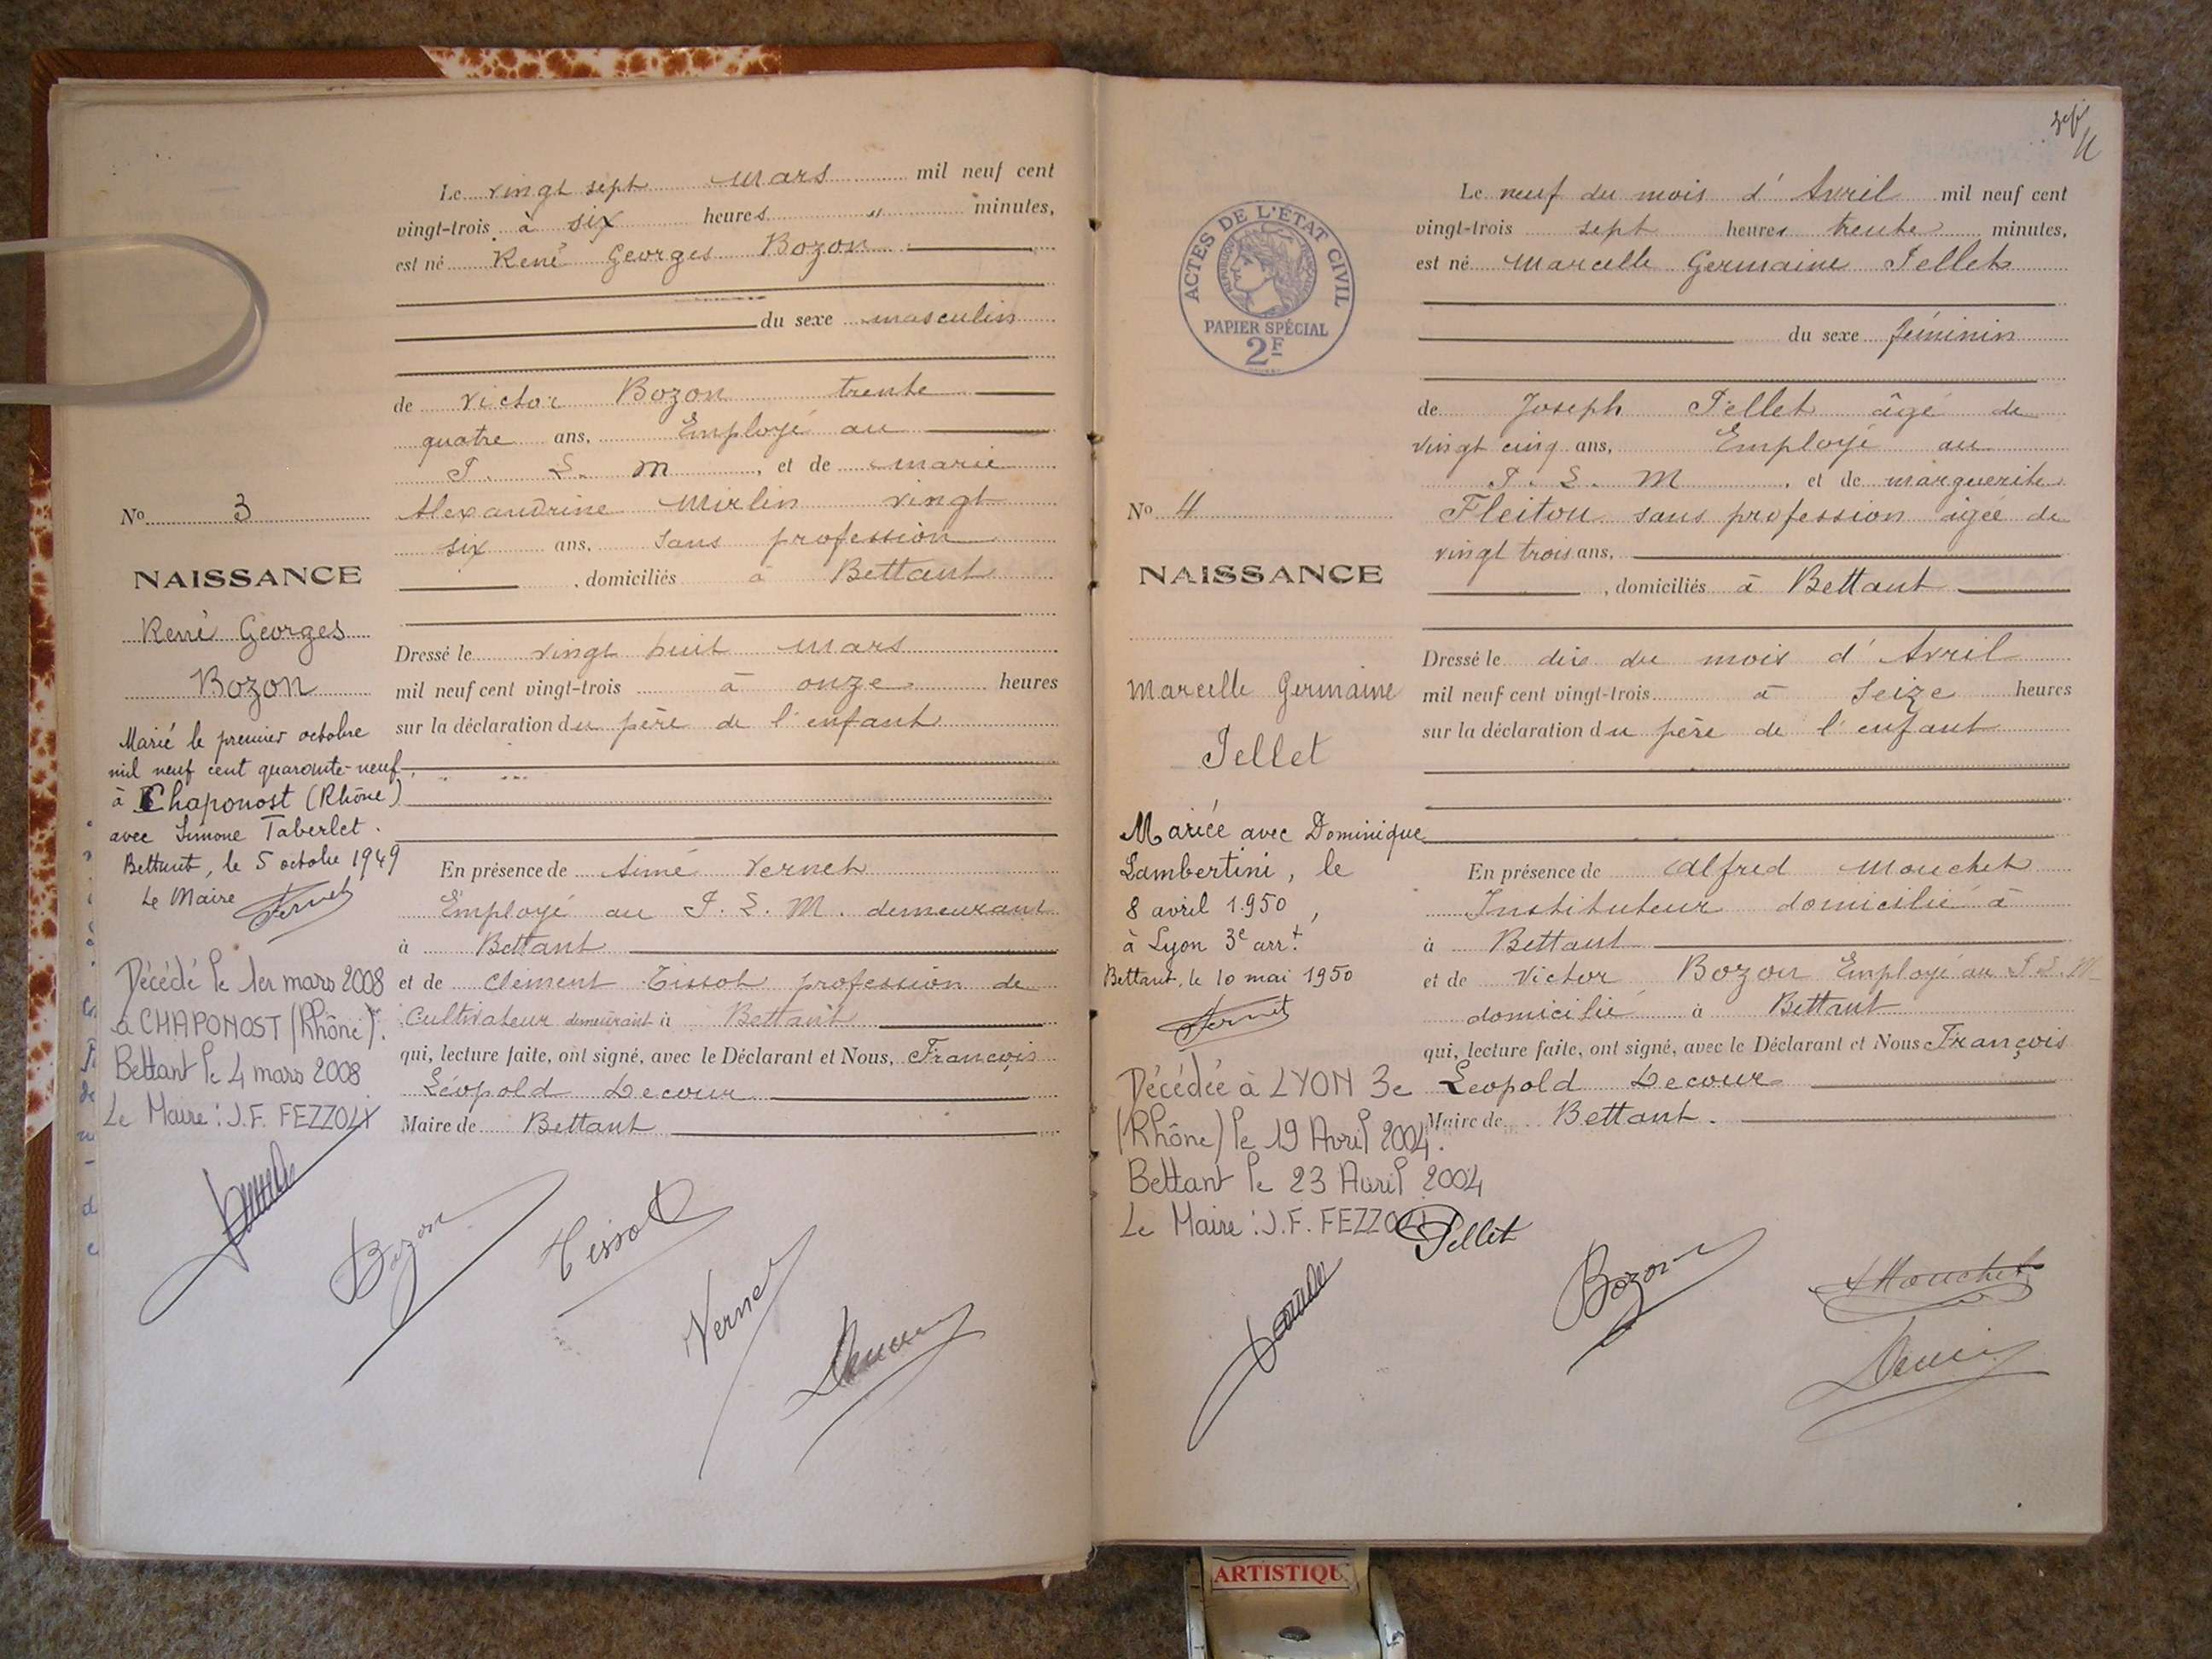 Le vingt sept mars mil neuf cent
vingt-trois à six heures " minutes,
est né René Georges Bozon
du sexe masculin
de Victor Bozon trente
quatre ans, Employé au
P. L. M , et de marie
Alexandrine Mirlin vingt
six ans, Sans profession
, domiciliés à Bettant
Dressé le vingt huit mars
mil neuf cent vingt-trois à onze heures
sur la déclaration du père de l'enfant
En présence de Aimé Vernet
Employé au P. L. M. demeurant
à Bettant
et de Clément Tissot profession de
Cultivateur demeurant à Bettant
qui, lecture faite, ont signé, avec le Déclarant et Nous, François
Léopold Decour
Maire de Bettant
No 3
NAISSANCE
René Georges
Bozon
Marié le premier octobre
mil neuf cent quarante-neuf
à Chaponost (Rhône)
avec Simone Taberlet.
Bettant, le 5 octobre 1949
Le Maire Vernet
Décédé le 1er mars 2008
à CHAPONOST (Rhône).
Bettant le 4 mars 2008
Le Maire : J.F. FEZZOLI
Bozon
Tissot
Vernet
ACTES DE L'ÉTAT CIVIL
PAPIER SPÉCIAL
2F
Le neuf du mois d'Avril mil neuf cent
vingt-trois sept heures trente minutes,
est né Marcelle Germaine Pellet
du sexe féminin
de Joseph Pellet âgé de
vingt cinq ans, Employé au
P. L. M , et de marguerite
Fleitou sans profession âgée de
vingt trois ans,
, domiciliés à Bettant
Dressé le dix du mois d'Avril
mil neuf cent vingt-trois à Seize heures
sur la déclaration du père de l'enfant
En présence de Alfred Mouchet
Instituteur domicilié à
à Bettant
et de Victor Bozon Employé au P L M
domicilié à Bettant
qui, lecture faite, ont signé, avec le Déclarant et Nous François
Léopold Decour
Maire de Bettant.
No 4
NAISSANCE
Marcelle Germaine
Pellet
Mariée avec Dominique
Lambertini, le
8 avril 1950,
à Lyon 3e arrt
Bettant, le 10 mai 1950
Vernet
Décédée à LYON 3e
(Rhône) le 19 Avril 2004.
Bettant le 23 Avril 2004
Le Maire : J.F. FEZZOLI
Pellet
Bozon
AMouchet
ARTISTIQU